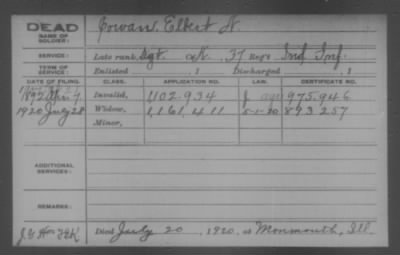 DEAD
NAME OF SOLDIER:
Cowan, Elbert H.
SERVICE:
Late rank, Sgt. Co. K, 37 Reg't Ind. Inf.
TERM OF SERVICE:
Enlisted , 1 Discharged , 1
DATE OF FILING. CLASS. APPLICATION NO. LAW. CERTIFICATE NO.
1892 7. Invalid, 1102.934 975.946
1920 July 28 Widow, 1,161,411 5-1-20 893257
Minor,
ADDITIONAL SERVICES:
REMARKS:
Died July 20, 1920, at Monmouth, Ill.